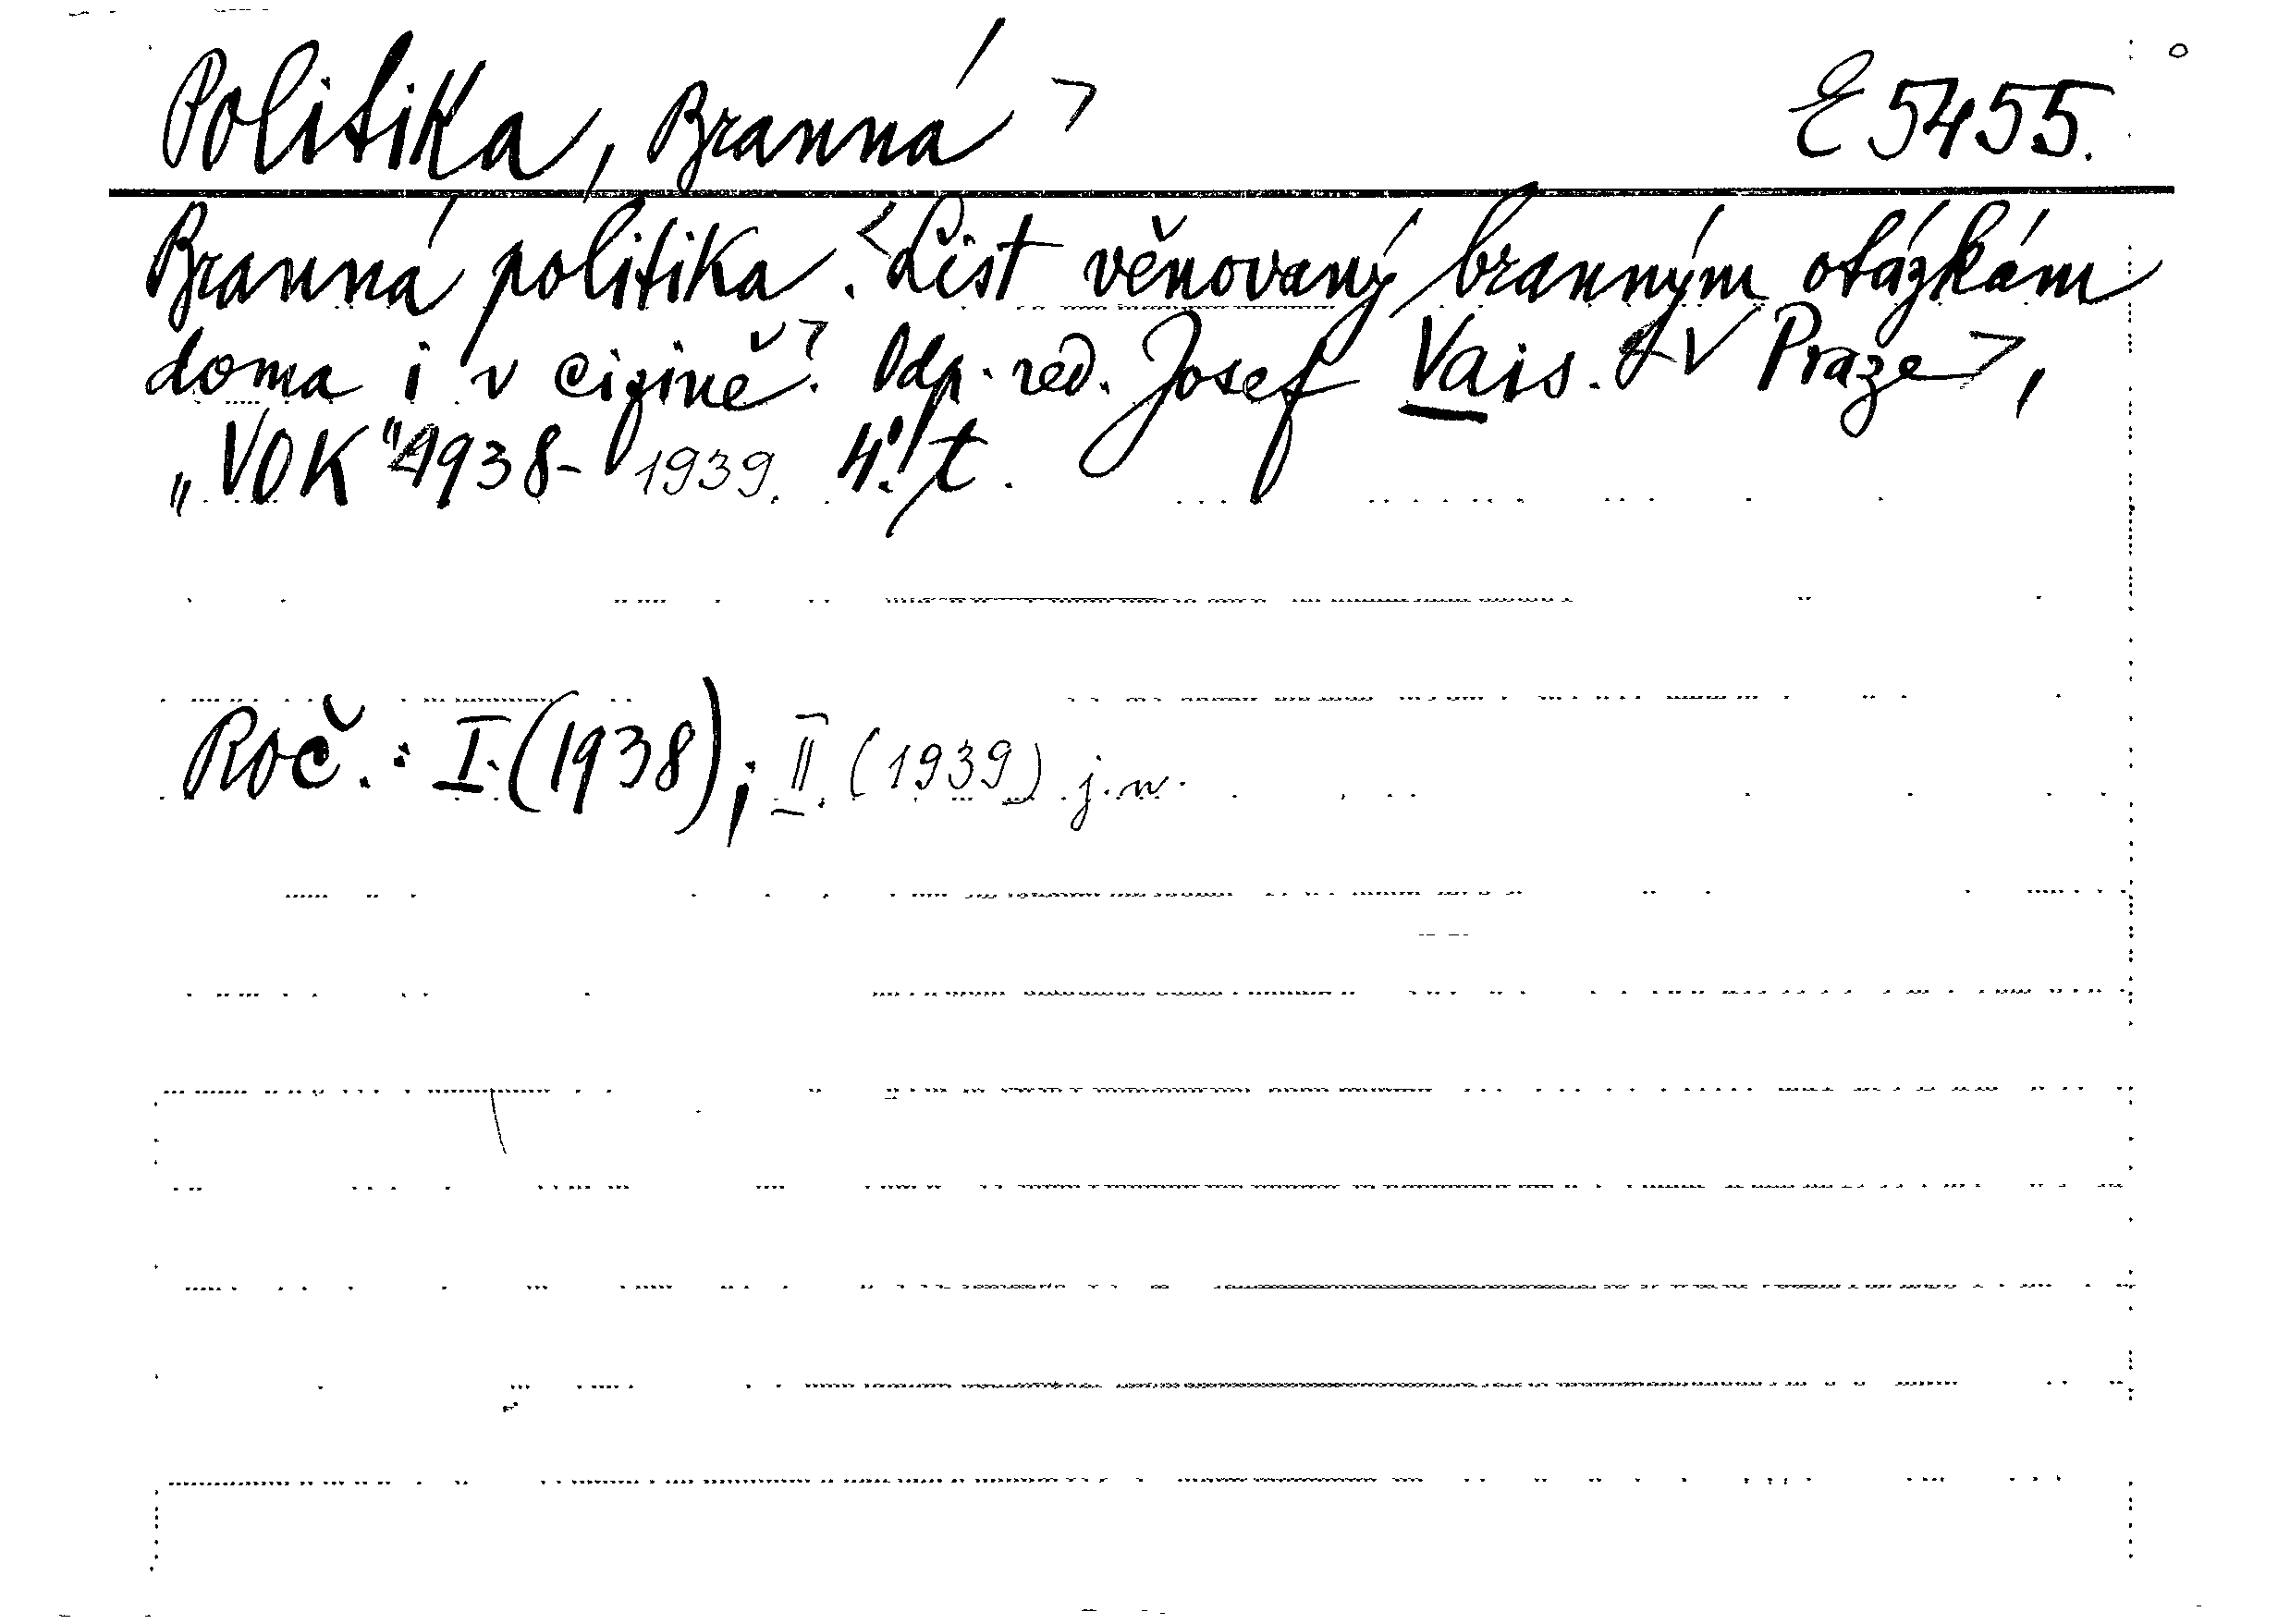 Politika, Branná > E 5455.
Branná politika. <List věnovaný branným otázkám
doma i v cizině>. Odp. red. Josef Vais. <V Praze>,
„VOK" 1938- 1939. 4°. t.
Roč. : I. (1938); II. (1939) j. w.